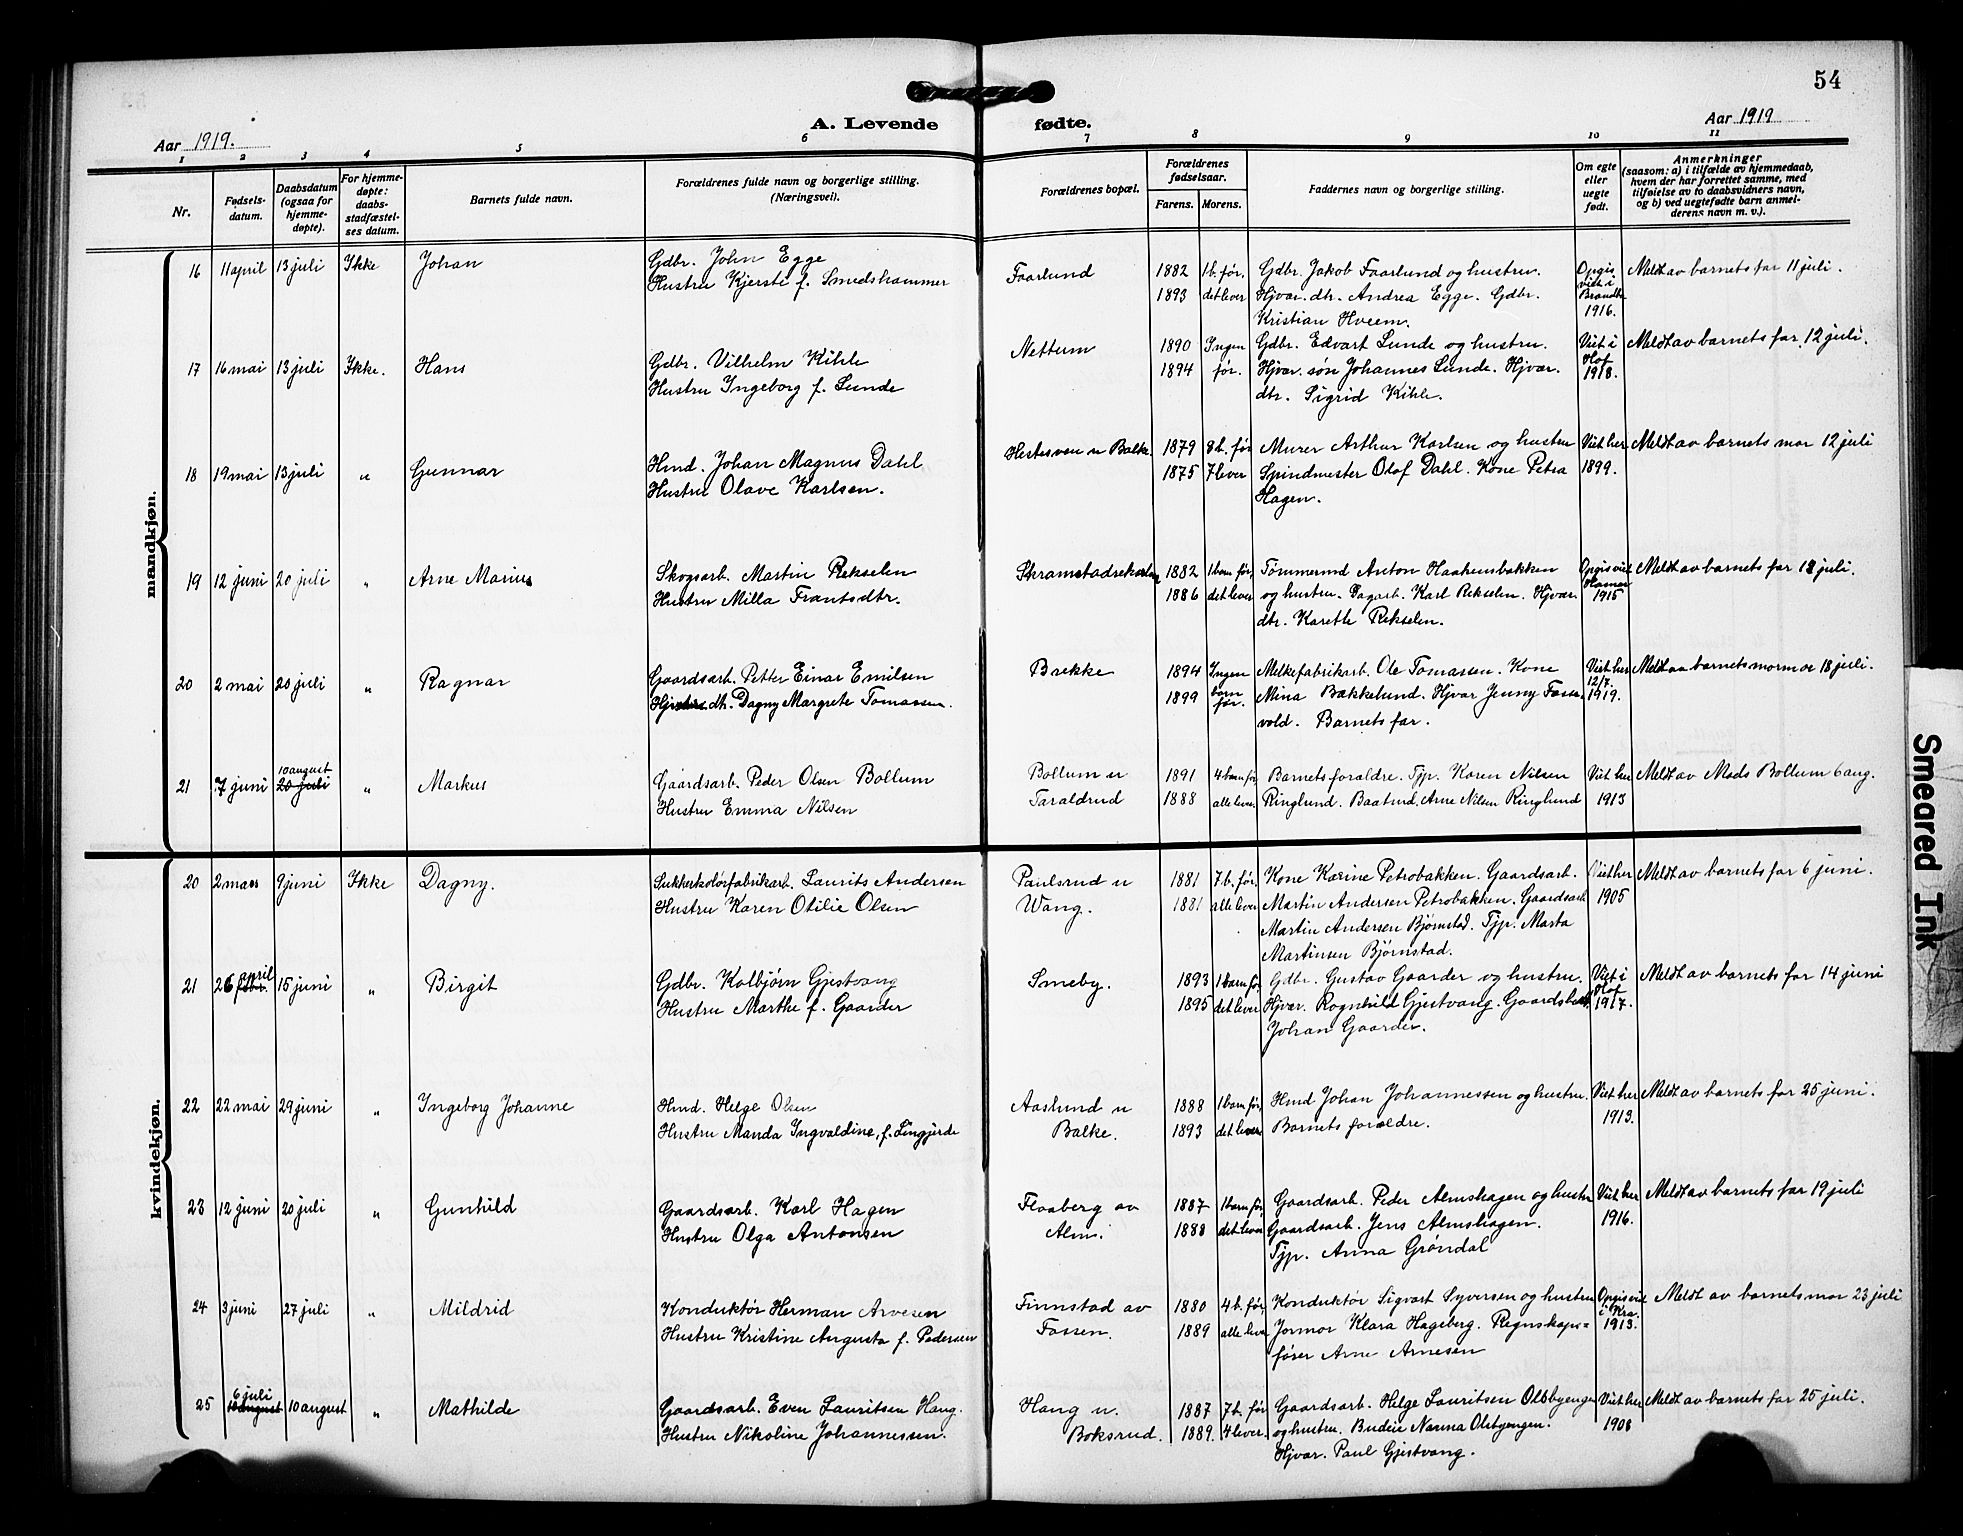 54
A. Levende fødte.
Aar 1919. Aar 1919
1 2 3 4 5 6 7 8 9 10 11
Nr.
Fødsels-
datum.
Daabsdatum
(ogsaa for
hjemme-
døpte).
For hjemme-
døpte:
daabs-
stadfæstel-
ses datum.
Barnets fulde navn.
Forældrenes fulde navn og borgerlige stilling.
(Næringsvei).
Forældrenes bopæl.
Forældrenes
fødselsaar.
Farens. Morens.
Faddernes navn og borgerlige stilling.
Om egte
eller
uegte
født.
Anmerkninger
(saasom: a) i tilfælde av hjemmedaab,
hvem der har forrettet samme, med
tilføielse av to daabsvidners navn,
og b) ved uegtefødte barn anmel-
derens navn m. v.).
mandkjøn.
16 11 april 13 juli Ikke Johan
Gdbr. John Egge
Hustru Kjersti f. Smedshammer
Faarlund
1882 1 b. før.
1893 det lever
Gdbr. Jakob Faarlund og hustru.
Hjvær. dtr. Andrea Egge. Gdbr.
Kristian Hveem.
Opgis
viet i
Brandbu
1916.
Meldt av barnets far 11 juli.
17 16 mai 13 juli Ikke. Hans
Gdbr. Vilhelm Kihle
Hustru Ingeborg f. Lunde
Nettum
1890 Ingen
1894 før.
Gdbr. Edvart Lunde og hustru.
Hjvær. søn Johannes Lunde. Hjvær.
dtr. Sigrid Kihle.
Viet i
Hof
1918.
Meldt av barnets far 12 juli.
18 19 mai 13 juli " Gunnar
Hmd. Johan Magnus Dahl
Hustru Olave Karlsen.
Hestesveen u Balke.
1879 8 b. før
1875 7 lever
Murer Arthur Karlsen og hustru
Spindmester Olaf Dahl. Kone Petra
Hagen.
Viet her
1899.
Meldt av barnets mor 12 juli
19 12 juni 20 juli " Arne Marius
Skogsarb. Martin Rekselen
Hustru Milla Frantsdtr.
1882 1 barn før,
1886 det lever
Tømmermd Anton Haakensbakken
og hustru. Dagarb. Karl Rekselen. Hjvær.
dtr. Karethe Rekselen.
Opgis viet
Hamar
1915
Meldt av barnets far 12 juli.
20 2 mai 20 juli " Ragnar
Gaardsarb. Petter Einar Emilsen
dtr. Dagny Margrete Tomassen.
Brekke
1894 Ingen
1899 barn før.
Melkefabrikarb. Ole Tomassen. Kone
Mina Bækkelund. Hjvær Jenny Fosse-
vold. Barnets far.
Viet her
12/7
1919.
Meldt av barnets mormor 18 juli.
21 7 juni 10 august
20 juli
" Markus
Gaardsarb. Peder Olsen Bollum
Hustru Emma Nilsen
Bollum u
Taraldrud
1891 4 barn før,
1888 alle lever
Barnets forældre. Tjp. Karen Nilsen
Ringlund. Baatsmd. Arne Nilsen Ringlund
Viet her
1913
Meldt av Mads Bollum 6 aug.
kvindekjøn.
20 2 mars 9 juni Ikke Dagny.
Sukkerkolørfabrikarb. Laurits Andersen
Hustru Karen Otilie Olsen
Paulsrud u
Wang.
1881 7 b. før.
1881 alle lever
Kone Karine Petrobakken. Gaardsarb.
Martin Andersen Petrobakken. Gaardsarb.
Martin Andersen Bjørnstad. Tjp. Marta
Martinsen Bjørnstad.
Viet her
1905
Meldt av barnets far 6 juni.
21 26 april
febr.
15 juni " Birgit
Gdbr. Kolbjørn Gjestvang
Hustru Marthe f. Gaarder
Smeby.
1893 1 barn før
1895 det lever
Gdbr. Gustav Gaarder og hustru.
Hjvær. Ragnhild Gjestvang.
Johan Gaarder.
Viet i
Hof
1917.
Meldt av barnets far 14 juni
22 22 mai 29 juni " Ingeborg Johanne
Hmd. Helge Olsen
Hustru Manda Ingvaldine, f. Lingjerde
Aaslund u
Balke.
1888 1 barn før,
1893 det lever
Hmd Johan Johannessen og hustru.
Barnets forældre.
Viet her
1913.
Meldt av barnets far 25 juni.
23 12 juni 20 juli " Gunhild
Gaardsarb. Karl Hagen
Hustru Olga Antonsen
Flaaberg av
Alm.
1887 1 barn før,
1888 det lever
Gaardsarb. Peder Almshagen og hustru
Gaardsarb. Jens Almshagen.
Tjp. Anna Grøndal
Viet her
1916.
Meldt av barnets far 19 juli
24 3 juni 27 juli " Mildrid
Konduktør Herman Arnesen
Hustru Kristine Augusta f. Pedersen
Finnstad av
Fossen.
1880 4 b. før,
1889 alle lever
Konduktør Sigvart Syversen og hustru
Jormor Klara Hageberg. Regnskaps=
fører Arne Arnesen
Opgis viet
i Kra
1913.
Meldt av barnets mor 23 juli
25 6 juli
10 august
10 august " Mathilde
Gaardsarb. Even Lauritsen Haug.
Hustru Nikoline Johannessen.
Haug u.
Boksrud.
1887 7 b. før
1889. 4 lever
Gaardsarb. Helge Lauritsen Olsbyengen
og hustru. Budeie Nanna Olsbyengen.
Hjvær. Paul Gjestvang.
Viet her
1908
Meldt av barnets far 25 juli.
Smeared Ink